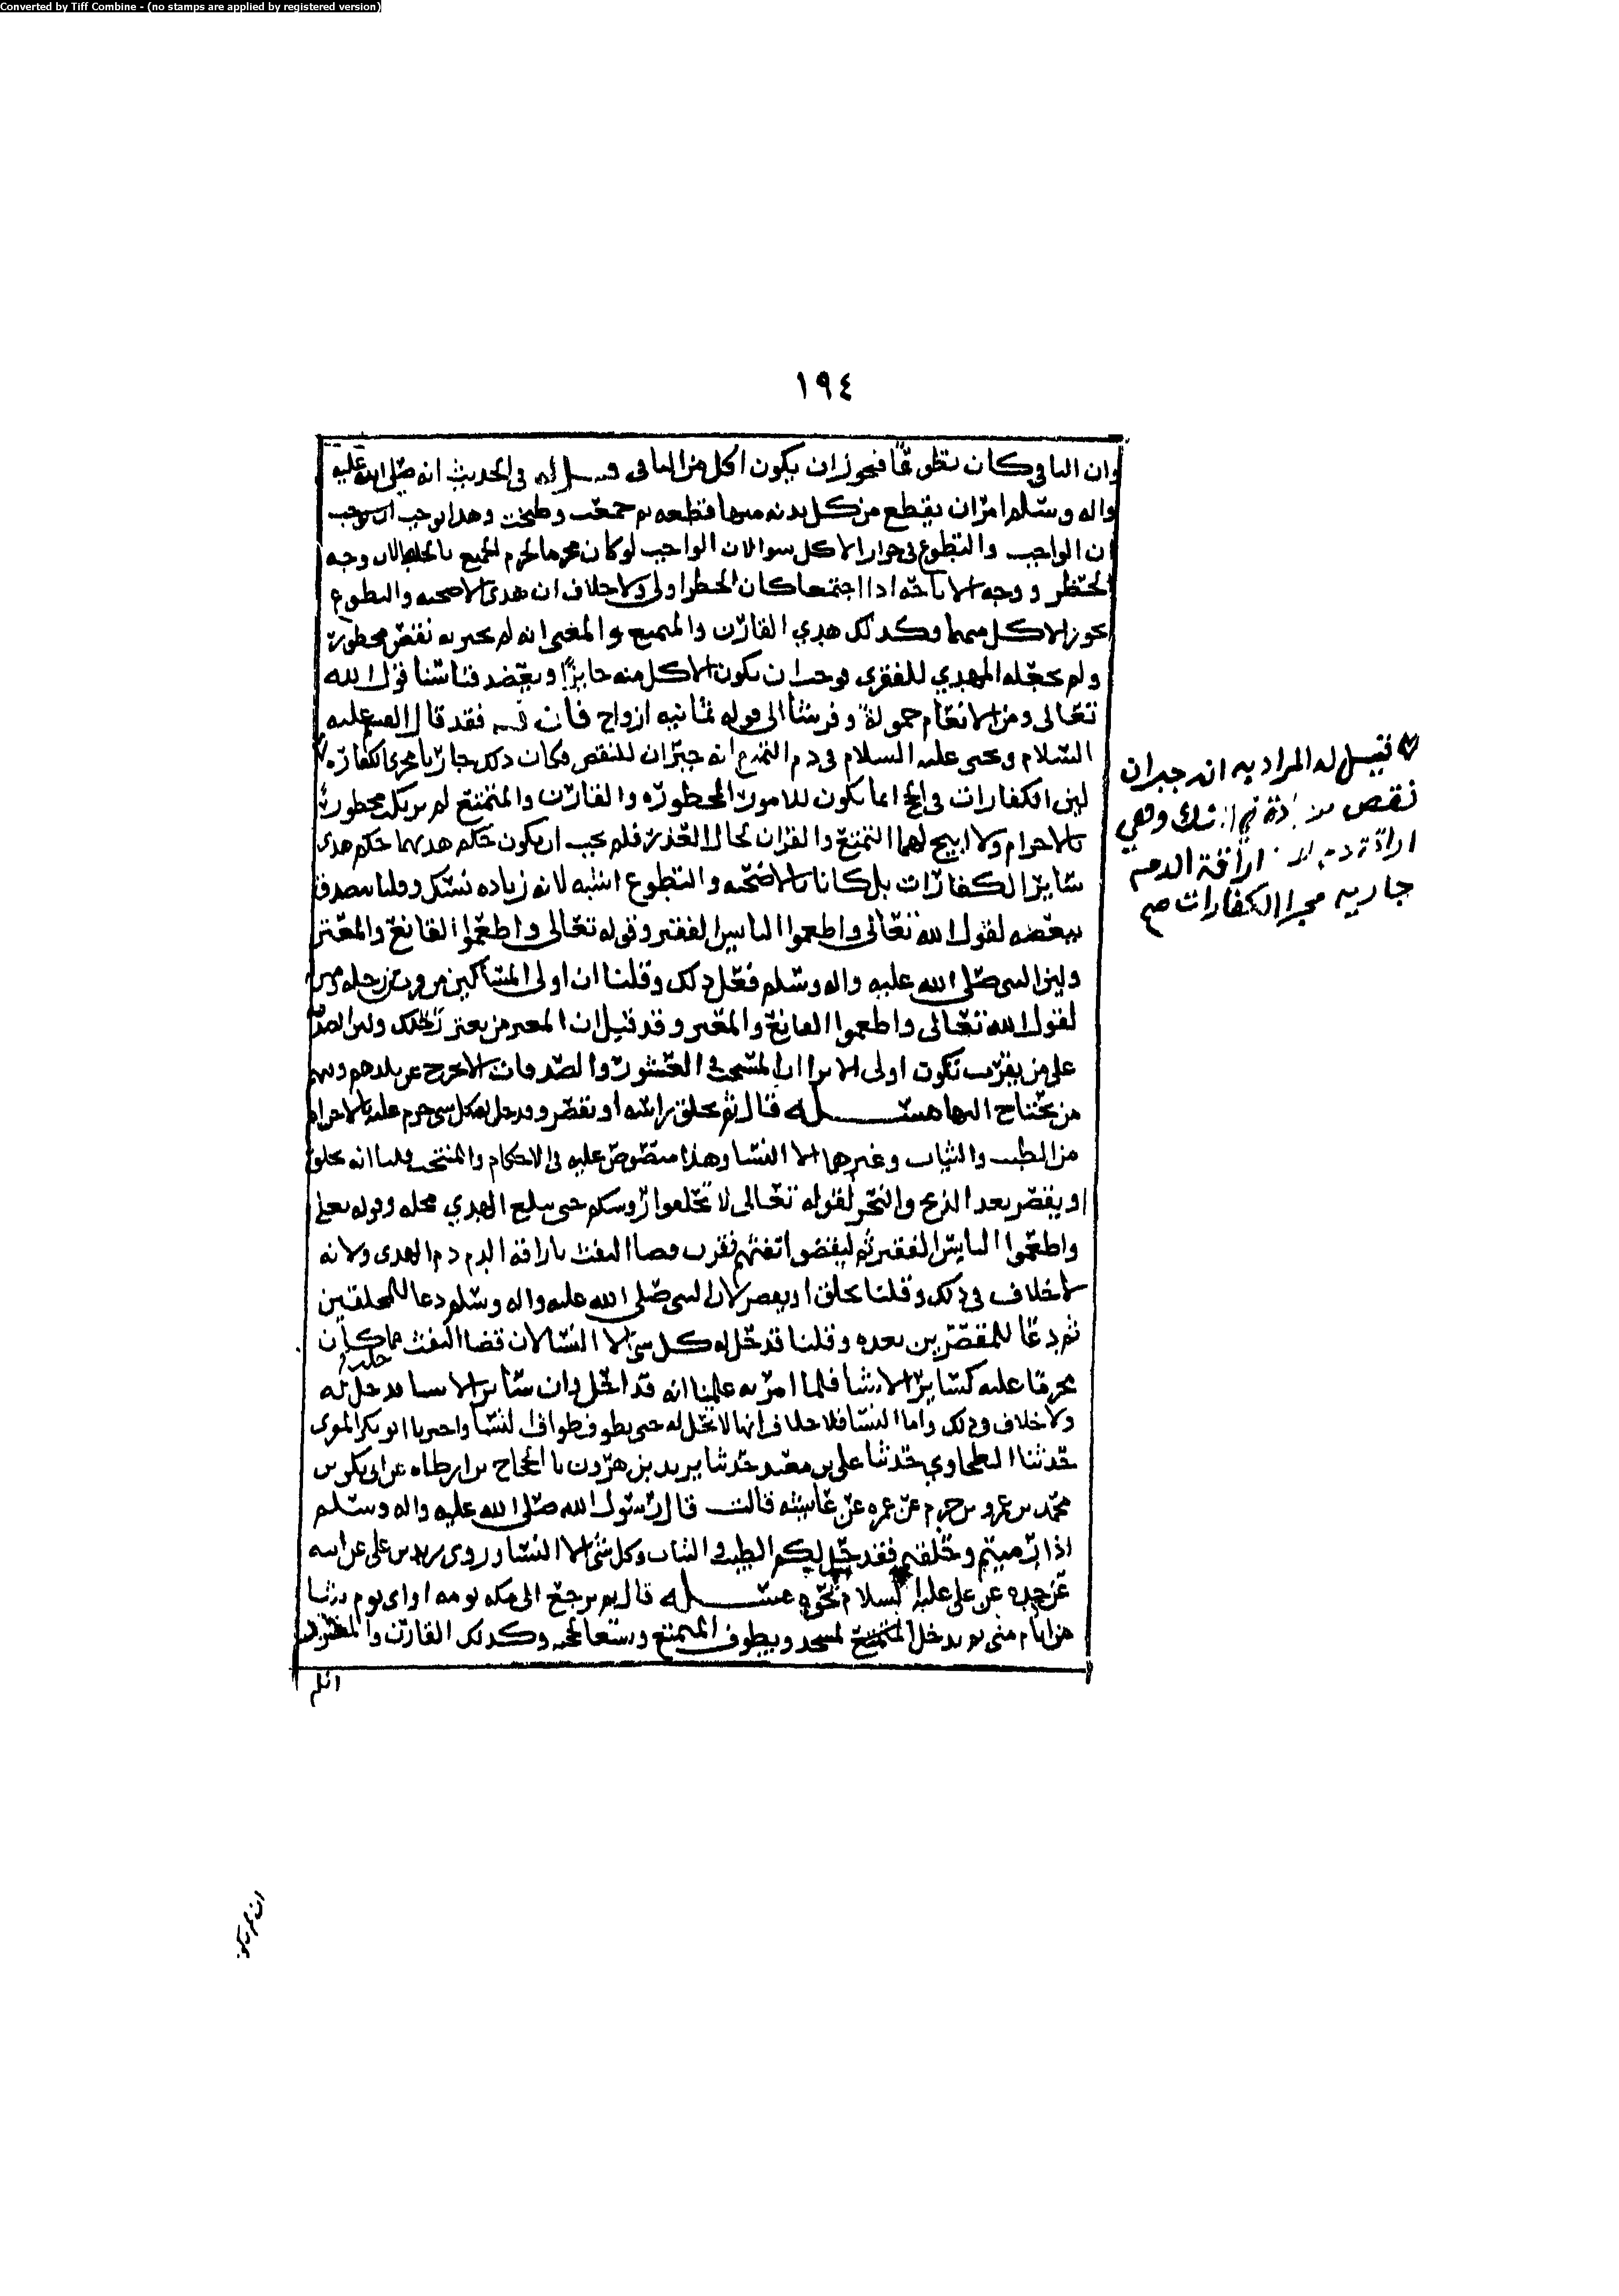 Converted by Tiff Combine - (no stamps are applied by registered version)
١٩٤
وان الباقي كان تطوعا فيجوز ان يكون اكل من الباقي قيل له في الحديث انه صلى الله عليه
واله وسلم امر ان يقطع من كل بدنه منها قطعه ثم جمعت وطبخت وهذا يوجب
ان الواجب والتطوع في جواز الاكل سوا لان الواجب لو كان محرما لحرم الجميع وجه
الحظر ووجه الاباحه اذا اجتمعا كان الحظر اولى ولا خلاف ان هدي الاضحيه والتطوع
يجوز الاكل منهما وكذلك هدي القارن والمتمتع والمعنى انه لم يجبر به نقض محظور
ولم يجعله المهدي للفقرى فوجب ان يكون الاكل منه جايزا ويعضد قياسنا قول الله
تعالى ومن الانعام حمولة وفرشا الى قوله ثمانيه ازواج فان قيل فقد قال القسم عليه
السلام ويحيى عليه السلام في دم التمتع انه جبران للنقص فكان ذلك جاريا مجرى الكفاره
لان الكفارات في الحج انما تكون للامور المحظوره والقارن والمتمتع لم يرتكب محظورا
بالاحرام ولا ابيح لهما التمتع والقران لحال العذر فلم يجب ان يكون حكم هديهما حكم هدي
ساير الكفارات بل كانا بالاضحيه والتطوع اشبه لانه زياده نسك وقلنا يتصدق
ببعضه لقول الله تعالى واطعموا البايس الفقير وقوله تعالى واطعموا القانع والمعتر
ولان النبي صلى الله عليه واله وسلم فعل ذلك وقلنا ان اولى المساكين من قرب من رحله
لقول الله تعالى واطعموا القانع والمعتر وقد قيل ان المعتر من يعتر رحلك ولان الصدقه
على من يقرب تكون اولى الا ترا ان المستحب في العشور والصدقات الا تخرج عن بلدهم وفيهم
من يحتاج اليها مسئله قال ثم يحلق راسه او يقصر وقد حل له كل شي حرم عليه بالاحرام
من الطيب والثياب وغيرها الا النسا وهذا منصوص عليه في الاحكام والمنتخب وقلنا انه يحلق
او يقصر بعد الذبح والنحر لقوله تعالى لا تحلقوا روسكم حتى يبلغ الهدي محله وقوله تعالى
واطعموا البايس الفقير ثم ليقضوا تفثهم فقرن قضا التفث باراقة الدم دم الهدي ولانه
لا خلاف في ذلك وقلنا يحلق او يقصر لان النبي صلى الله عليه واله وسلم دعا للمحلقين
ثم دعا للمقصرين بعده وقلنا قد حل له كل شي الا النسا لان قضا التفث مما كان
محرما عليه كساير الاشيا فلما امر به علمنا انه قد احل وان ساير الاشيا قد حل له
ولا خلاف في ذلك واما النسا فلا خلاف انها لا تحل له حتى يطوف طواف النسا واخبرنا ابو بكر المقري
حدثنا الطحاوي حدثنا علي بن معبد حدثنا يزيد بن هرون نا الحجاج بن ارطاه عن ابي بكر بن
محمد بن عمرو بن حزم عن عمره عن عايشه قالت قال رسول الله صلى الله عليه واله وسلم
اذا رميتم وحلقتم فقد حل لكم الطيب والثياب وكل شي الا النسا وروى زيد بن علي عن ابيه
عن جده عن علي عليه السلام نحوه مسئله قال ثم يرجع الى مكه يومه او اي يوم شا
من ايام منى ثم يدخل المتمتع المسجد ويطوف المتمتع ويسعا لحجه وكذلك القارن والمفرد
فقيل له المراد به انه جبران
نقص وهي
اراقة الدم
جاريه مجرا الكفارات صح